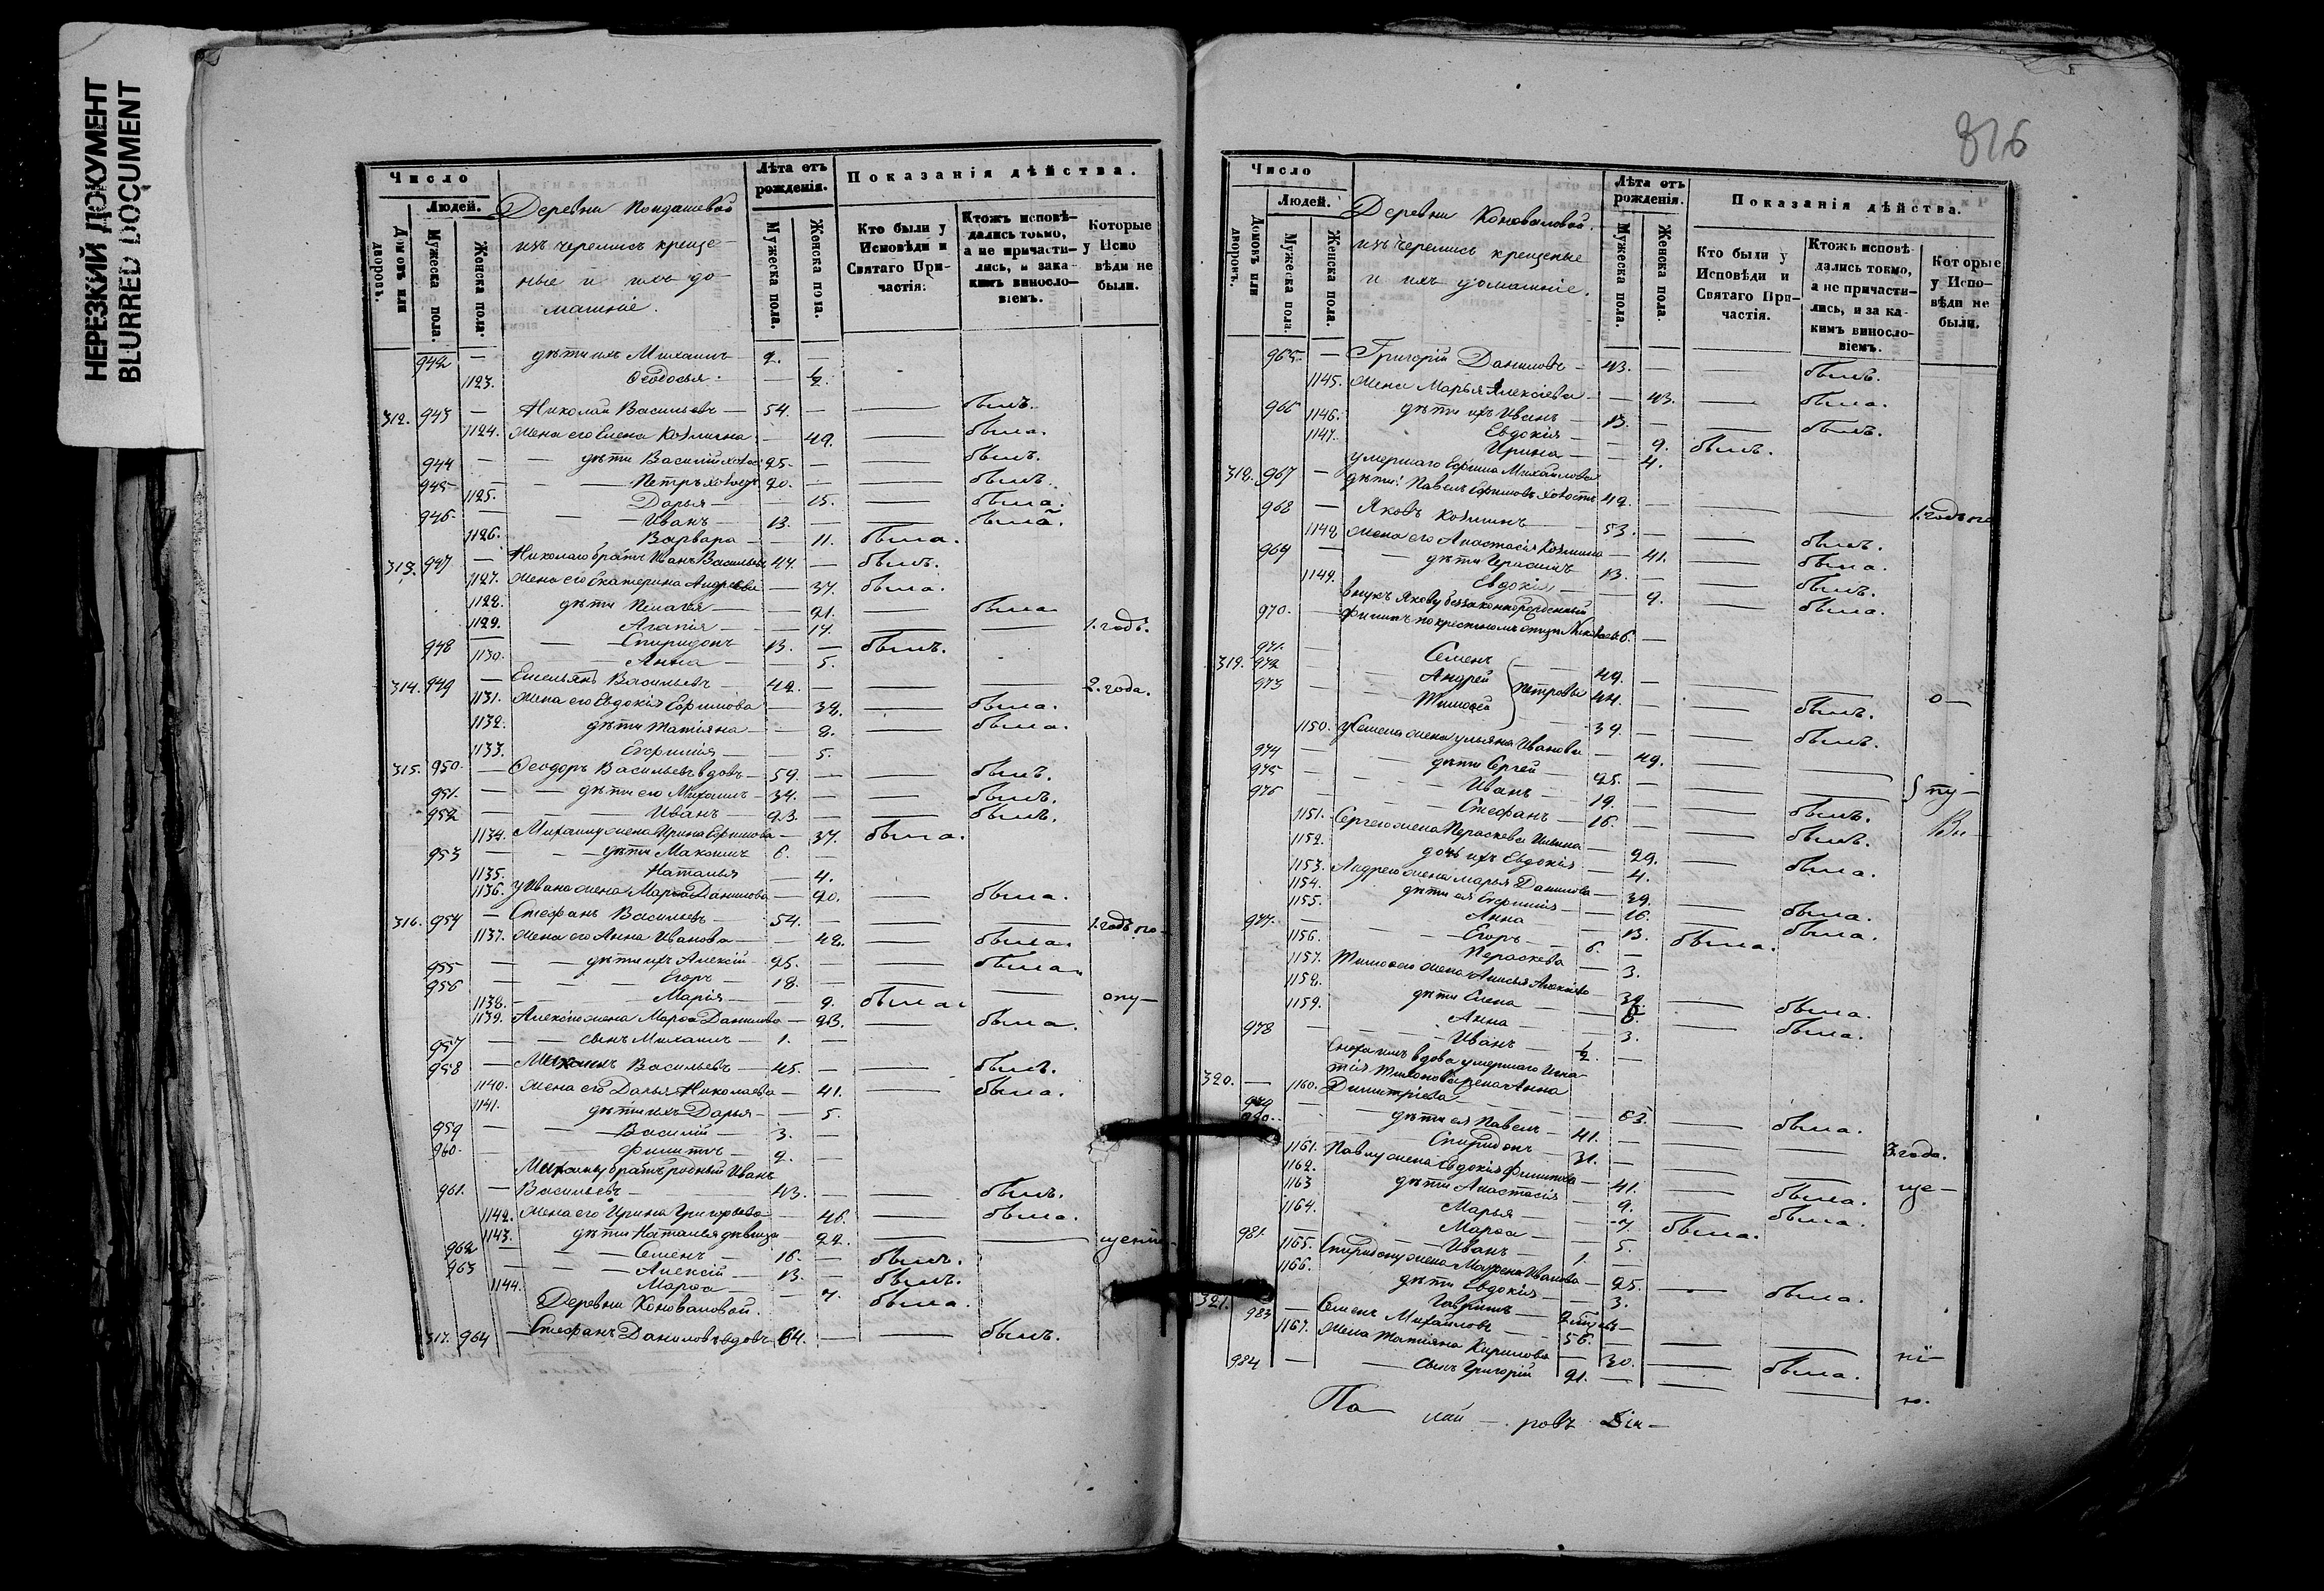 НЕРЕЗКИЙ ДОКУМЕНТ
BLURRED DOCUMENT
Число
Людей.
Домовъ или дворовъ.
Мужеска пола.
Женска пола.
Деревни
изъ черемисъ креще-
ные и ихъ до-
машніе.
Лѣта отъ рожденія.
Мужеска пола.
Женска пола.
Показанія дѣйства.
Кто были у Исповѣди и Святаго При-частія.
Ктожъ исповѣ-дались токмо, а не причасти-лись, и за ка-кимъ винословіемъ.
Которые у Испо вѣди не были.
942 — дѣти ихъ Михаилъ — 2. —
1123. Ѳеодосья — — ½.
312. 943 — Николай Васильевъ — 54. — — былъ.
1124. Жена его Елена Козмина — — 49. — была.
944 — — дѣти Василий холос. 25. — — былъ.
945 — — Петръ холост. 20. — — былъ.
1125. Дарья — — 15. — была.
946 — — Иванъ — 13. — — была.
1126. Варвара — — 11. была.
313. 947 — Николаю братъ Иванъ Васильевъ 44. — былъ.
1127. Жена его Екатерина Андреева — 37. была.
1128. дѣти Пелагья — — 21. — была
1129. Агапія — — 14. — — 1. годъ.
948 — — Спиридонъ — 13. — былъ.
1130. Анна — — 5.
314. 949 — Емельянъ Васильевъ — 42. — — — 2. года.
1131. Жена его Евдокія Ефимова — 38. — была.
1132. дѣти Татіяна — — 8. — была.
1133. Евфимія — — 5.
315. 950. — Ѳеодоръ Васильевъ вдовъ — 59. — — былъ.
951. — — дѣти его Михаилъ — 34. — — былъ.
952 — — Иванъ — 23. — — былъ.
1134. Михаилу жена Ирина Ефимова — 37. была.
953 — — дѣти Максимъ 6. —
1135. Наталья — 4.
1136. у Ивана жена Марѳа Данилова — 20. — была.
316. 954 — Стефанъ Васильевъ — 54. — — — 1. годъ по-
1137. Жена его Анна Иванова — — 48. — была.
955 — — дѣти ихъ Алексій — 25. — — была
956 — — Егоръ — 18. — — —
1138. — Марія — — 9. была. опу-
1139. Алексію жена Марѳа Данилова — 23. — была.
957 — — сынъ Михаилъ — 1. —
958 — Михаилъ Васильевъ — 45. — — былъ.
1140. Жена его Дарья Николаева — 41. — была.
1141. дѣти ихъ Дарья — — 5.
959 — — Василій — 3. —
960. — — Филиппъ — 2. —
Михаилу братъ родный Иванъ
961. — Васильевъ — 43. — — былъ.
1142. Жена его Ирина Григорьева — 46. — была.
1143. дѣти Наталья дѣвица — 22. — — щенію
962 — — Семенъ — 16. — былъ.
963 — — Алексій — 13. — былъ.
1144. Марѳа — — 7. была.
Деревни Коноваловой.
317. 964 — Стефанъ Даниловъ вдовъ 64. — — былъ.
816
Число
Людей.
Домовъ или дворовъ.
Мужеска пола.
Женска пола.
Деревни Коноваловой.
изъ черемисъ крещеные
и ихъ домашніе.
Лѣта отъ рожденія.
Мужеска пола.
Женска пола.
Показанія дѣйства.
Кто были у Исповѣди и Святаго При-частія.
Ктожъ исповѣ-дались токмо, а не причасти-лись, и за ка-кимъ винословіемъ.
Которые у Испо-вѣди не были.
965. — Григорій Даниловъ — 43. — — былъ.
1145. Жена Марья Алексіева — — 43. — была.
966 дѣти ихъ Иванъ — 13. — — былъ.
1146. Евдокія — — 9. былъ.
1147. Ирина — — 4.
умершаго Ефима Михайлова
318. 967 — дѣти: Павелъ Ефимовъ холостъ 42. — — — 1. годъ по
968 — Яковъ Козминъ — 53. — — былъ.
1148. Жена его Анастасія Козмина — 41. — была.
969 — — дѣти Герасимъ 13. — — былъ.
1149. Евдокія — — 9. — была.
внукъ Якову беззаконнорожденный
970. Филипъ по крестномъ отцѣ Николаевъ 6. —
319. 971. — Семенъ — 49. — — — о—
972 — Андрей Петровы 44. — — былъ.
973 — Тимоѳей — 39. — — былъ.
1150. у Семена жена Ульяна Иванова — 49. — —
974 — дѣти Сергей — 25. — — — пу—
975 — — Иванъ — 19. — — былъ.
976 — — Стефанъ — 16. — — былъ.
1151. Сергею жена Параскева — 29. — была.
1152. дочь ихъ Евдокія — — 4.
1153. Андрею жена Марья Данилова — 39. — была.
1154. дѣти ея Евфимія — — 16. — была.
1155. Анна — — 13. была.
977. — — Егоръ — 6. —
1156. Параскева — 3.
1157. Тимоѳею жена Анисья Алексіева — 39. — была.
1158. дѣти Елена — — 6. — была.
1159. Анна — — 3.
978 — — Иванъ — ½. —
Сноха имъ вдова умершаго Игна-
тія жена Анна
320. — 1160. Димитріева — — 63. — была.
979 — — дѣти ея Павелъ — 41. — — — 3. года.
980. — Спиридонъ — 31. — — — ще—
1161. Павлу жена Евдокія Филипова — 41. — была.
1162. дѣти Анастасія — 9. — была.
1163 Марья — — 7. была.
1164. Марѳа — — 5.
981. — — Иванъ — 1. —
1165. Спиридону жена Иванова — 25. — была.
1166. дѣти Евдокія — — 3.
Гавріилъ
321. 983 — Семенъ Михайловъ — 56. — — — ні—
1167. Жена Татіяна Кирилова — 30. — была.
984 — — сынъ Григорій 21. — — — ю.
По ровъ